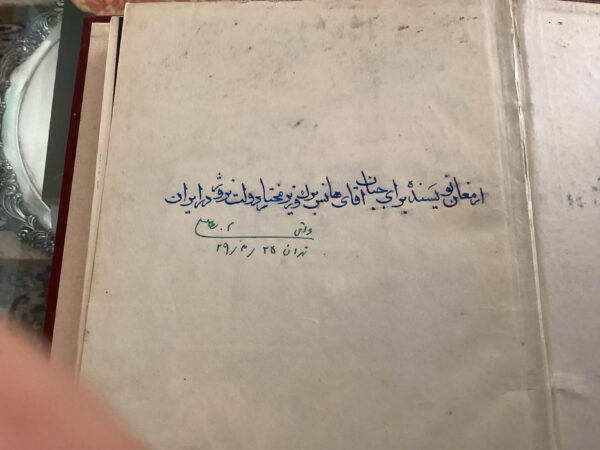 ارمغان نویسندهٔ برای جناب آقای هانس برك وزیر مختار دولت نروژ در ایران
تهران ۲۵ ر ۳ ر ۲۹